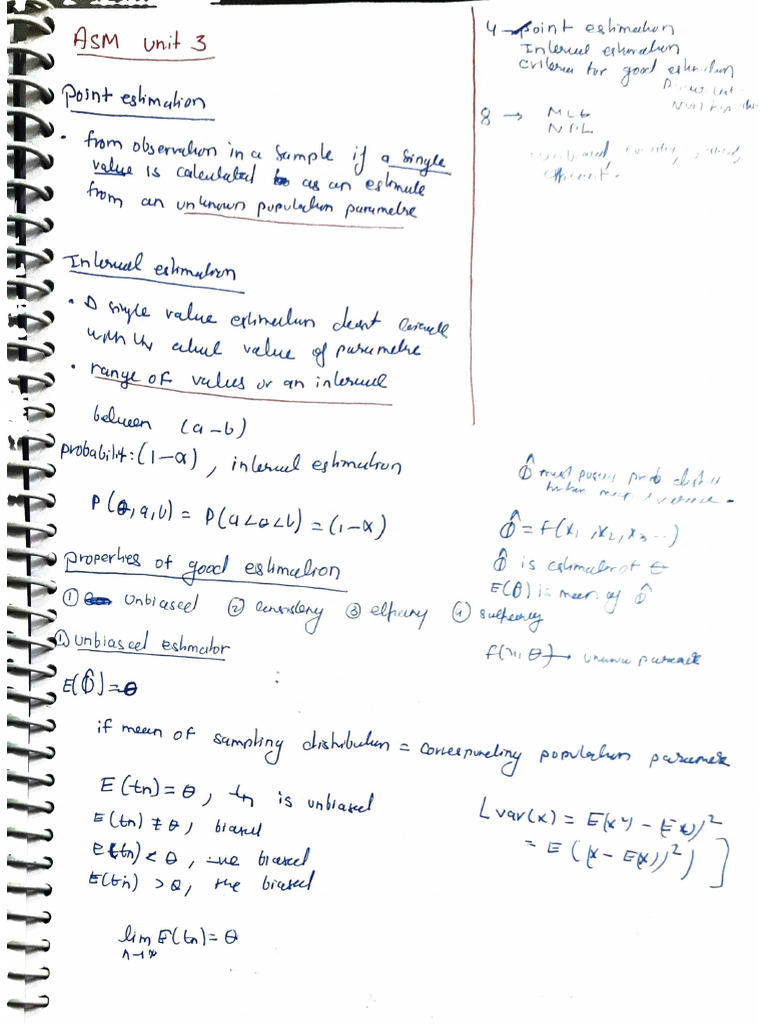 ASM unit 3
Point estimation
• from observation in a sample if a single
value is calculated as an estimate
from an unknown population parametre
Interval estimation
• A single value estimation doesnt
with the actual value of parametre
• range of values or an interval
between (a-b)
probability: (1-α), interval estimation
P(θ,a,b) = P(a<θ<b) = (1-α)
Properties of good estimation
① Unbiased ② consistency ③ efficiency ④ sufficiency
① unbiased estimator
E(θ̂) = θ
if mean of sampling distribution = corresponding population parameter
E(tn) = θ, tn is unbiased
E(tn) ≠ θ, biased
E(tn) < θ, -ve biased
E(tn) > θ, +ve biased
lim E(tn) = θ
n→∞
4 → point estimation
Interval estimation
criteria for good estimation
8 → MLE
θ̂ must posses prob
θ̂ = f(x1, x2, x3 ..)
θ̂ is estimator of θ
E(θ) is mean of θ̂
θ) → unknown
[var(x) = E(x²) - (Ex)²
= E((x - E(x))²)]